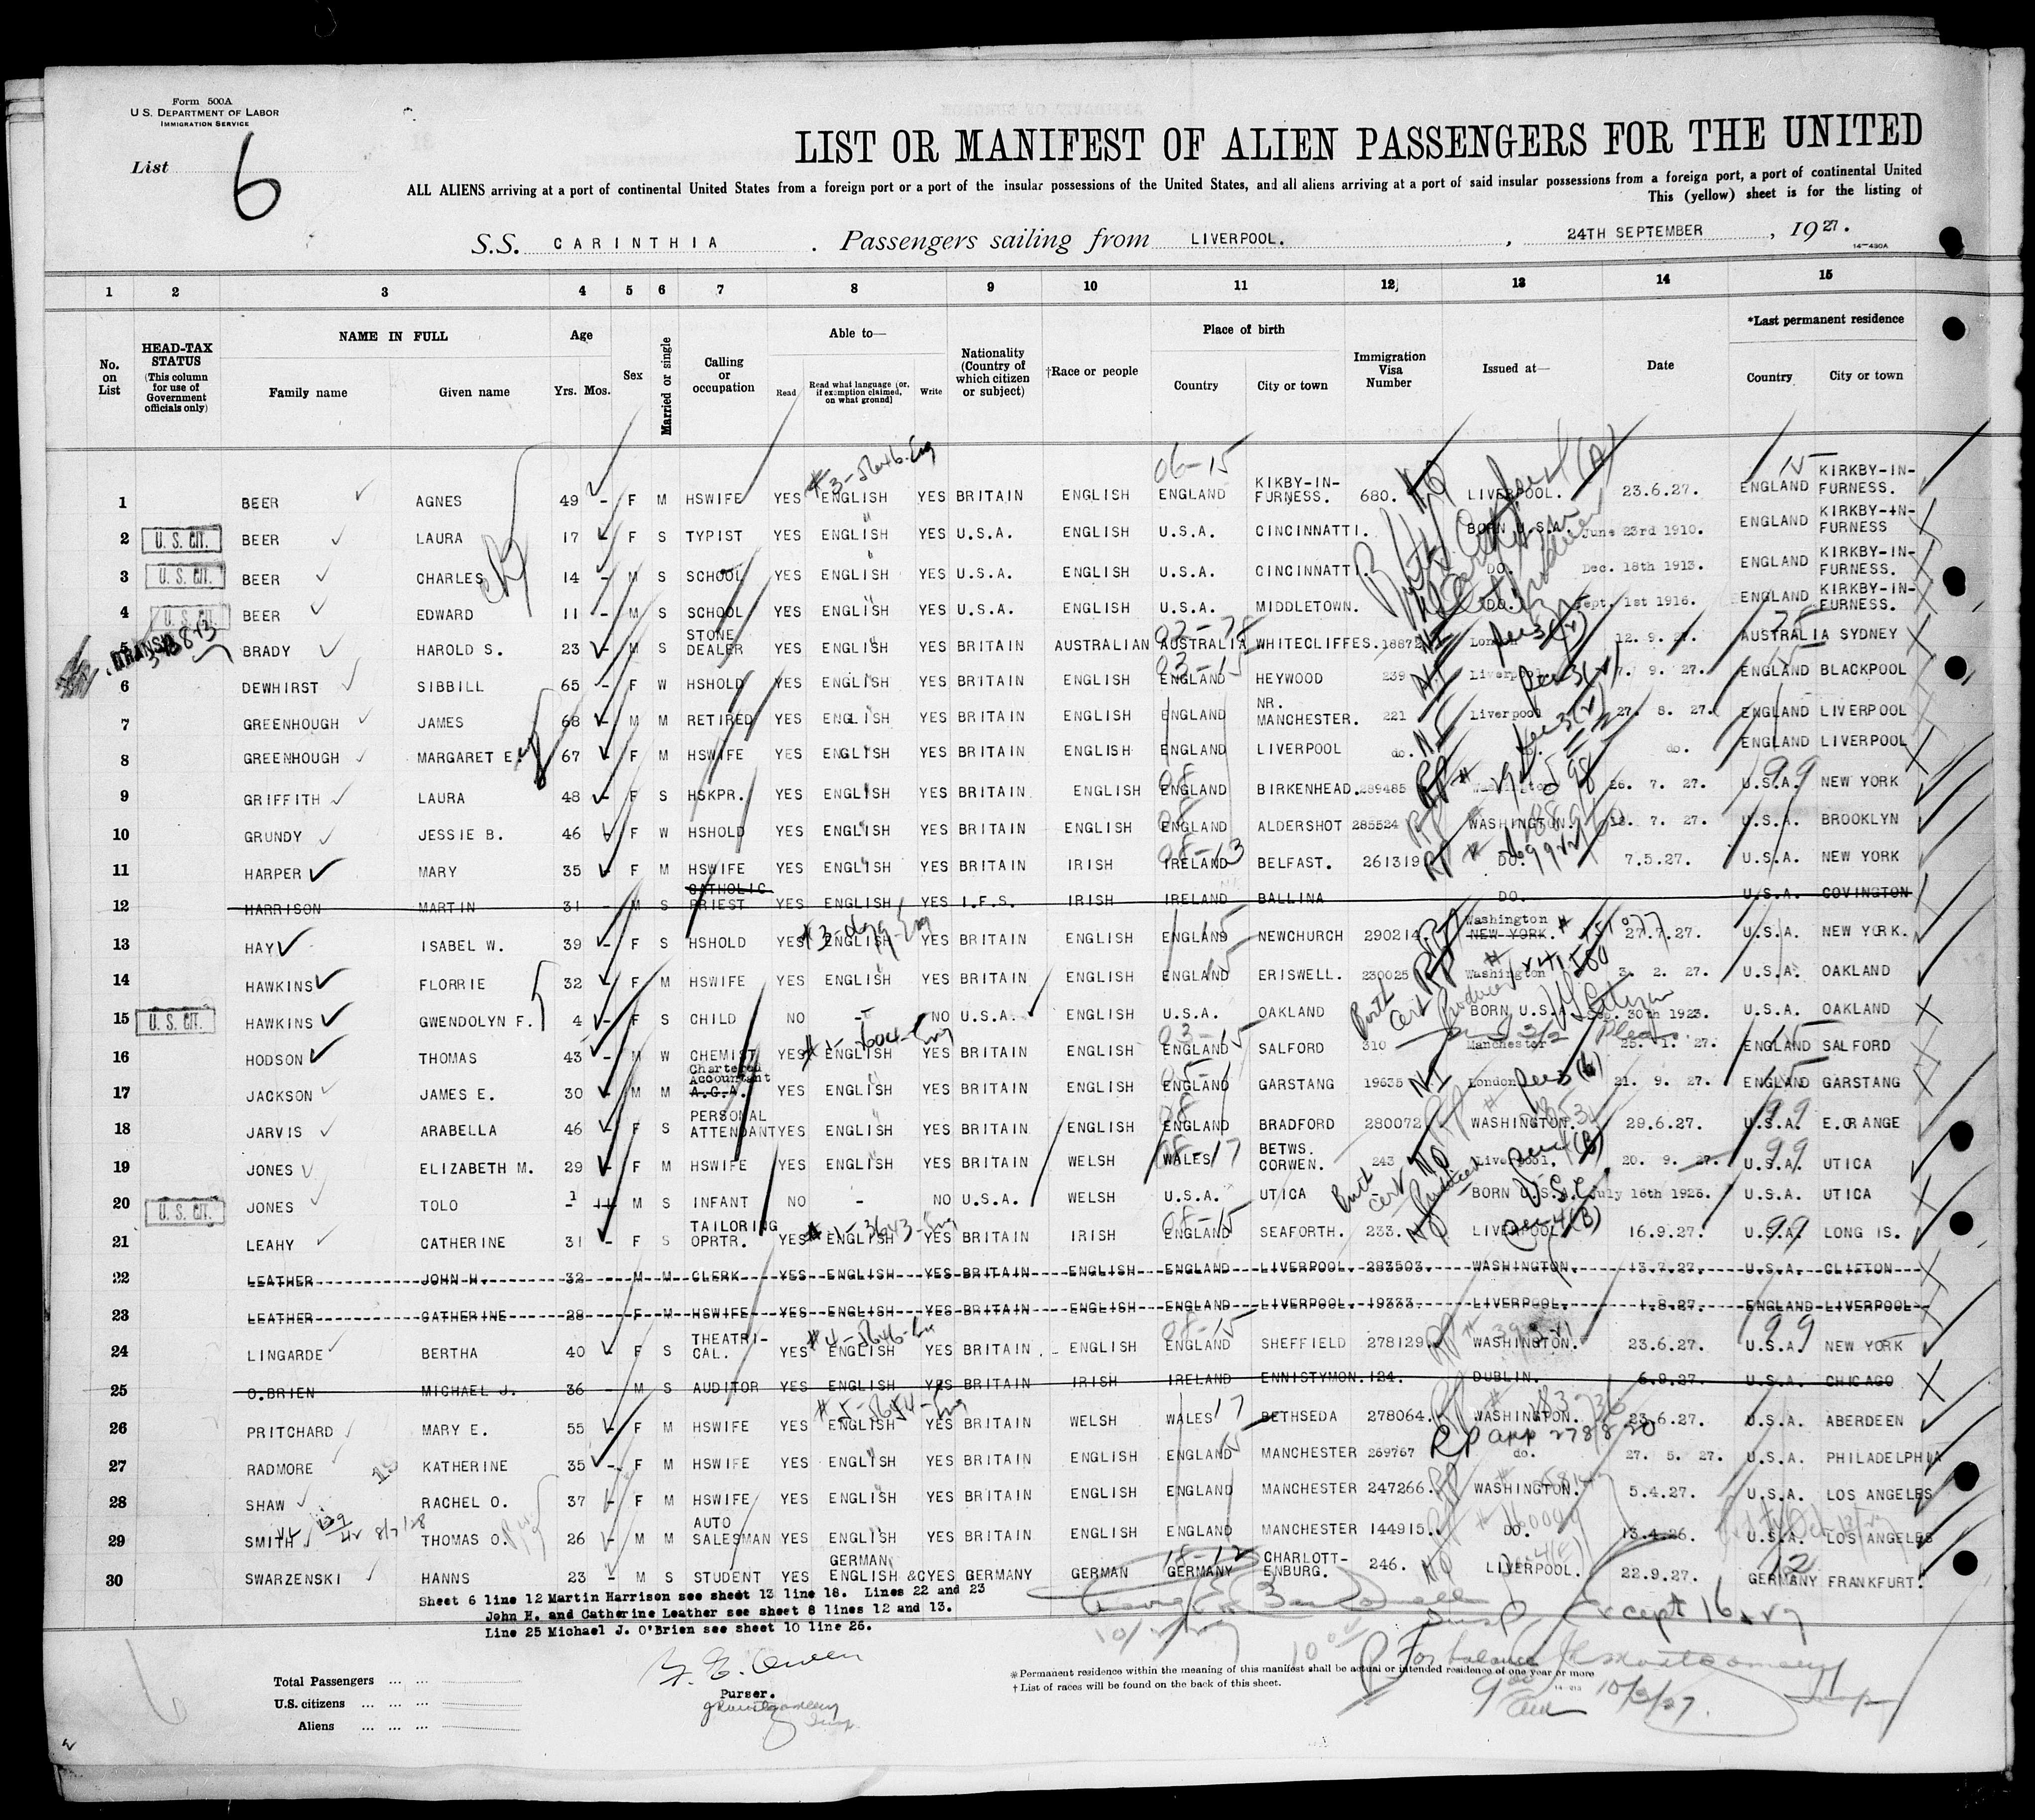 Form 500A
U. S. DEPARTMENT OF LABOR
IMMIGRATION SERVICE
List 6
LIST OR MANIFEST OF ALIEN PASSENGERS FOR THE UNITED
ALL ALIENS arriving at a port of continental United States from a foreign port or a port of the insular possessions of the United States, and all aliens arriving at a port of said insular possessions from a foreign port, a port of continental United
This (yellow) sheet is for the listing of
S.S. CARINTHIA. Passengers sailing from LIVERPOOL., 24TH SEPTEMBER, 1927.
14-430A
1 2 3 4 5 6 7 8 9 10 11 12 13 14 15
No. on List
HEAD-TAX STATUS (This column for use of Government officials only)
NAME IN FULL
Family name Given name
Age
Yrs. Mos.
Sex
Married or single
Calling or occupation
Able to—
Read
Read what language [or, if exemption claimed, on what ground]
Write
Nationality (Country of which citizen or subject)
†Race or people
Place of birth
Country City or town
Immigration Visa Number
Issued at—
Date
*Last permanent residence
Country City or town
1 BEER AGNES 49 - F M HSWIFE YES ENGLISH YES BRITAIN ENGLISH ENGLAND KIKBY-IN-FURNESS. 680. LIVERPOOL. 23.6.27. ENGLAND KIRKBY-IN-FURNESS.
2 U. S. CIT. BEER LAURA 17 - F S TYPIST YES ENGLISH YES U.S.A. ENGLISH U.S.A. CINCINNATTI. BORN U.S.A. June 23rd 1910. ENGLAND KIRKBY-IN-FURNESS
3 U. S. CIT. BEER CHARLES 14 - M S SCHOOL YES ENGLISH YES U.S.A. ENGLISH U.S.A. CINCINNATTI. DO. Dec. 18th 1913. ENGLAND KIRKBY-IN-FURNESS.
4 U. S. CIT. BEER EDWARD 11 - M S SCHOOL YES ENGLISH YES U.S.A. ENGLISH U.S.A. MIDDLETOWN. DO. Sept. 1st 1916. ENGLAND KIRKBY-IN-FURNESS.
5 BRADY HAROLD S. 23 - M S STONE DEALER YES ENGLISH YES BRITAIN AUSTRALIAN AUSTRALIA WHITECLIFFES. 18872 London 12. 9. 27. AUSTRALIA SYDNEY
6 DEWHIRST SIBBILL 65 - F W HSHOLD YES ENGLISH YES BRITAIN ENGLISH ENGLAND HEYWOOD 239 Liverpool 7. 9. 27. ENGLAND BLACKPOOL
7 GREENHOUGH JAMES 68 - M M RETIRED YES ENGLISH YES BRITAIN ENGLISH ENGLAND NR. MANCHESTER. 221 Liverpool 27. 8. 27. ENGLAND LIVERPOOL
8 GREENHOUGH MARGARET E. 67 - F M HSWIFE YES ENGLISH YES BRITAIN ENGLISH ENGLAND LIVERPOOL do. do. ENGLAND LIVERPOOL
9 GRIFFITH LAURA 48 - F S HSKPR. YES ENGLISH YES BRITAIN ENGLISH ENGLAND BIRKENHEAD. 289485 Washington 26. 7. 27. U.S.A. NEW YORK
10 GRUNDY JESSIE B. 46 - F W HSHOLD YES ENGLISH YES BRITAIN ENGLISH ENGLAND ALDERSHOT 285524 WASHINGTON. 7. 27. U.S.A. BROOKLYN
11 HARPER MARY 35 - F M HSWIFE YES ENGLISH YES BRITAIN IRISH IRELAND BELFAST. 261319 DO. 7.5.27. U.S.A. NEW YORK
12 HARRISON MARTIN 31 - M S CATHOLIC PRIEST YES ENGLISH YES I.F.S. IRISH IRELAND BALLINA DO. U.S.A. COVINGTON
13 HAY ISABEL W. 39 - F S HSHOLD YES ENGLISH YES BRITAIN ENGLISH ENGLAND NEWCHURCH 290214 Washington NEW YORK. 27.7.27. U.S.A. NEW YORK.
14 HAWKINS FLORRIE 32 - F M HSWIFE YES ENGLISH YES BRITAIN ENGLISH ENGLAND ERISWELL. 230025 Washington 3. 2. 27. U.S.A. OAKLAND
15 U. S. CIT. HAWKINS GWENDOLYN F. 4 - F S CHILD NO - NO U.S.A. ENGLISH U.S.A. OAKLAND BORN U.S.A. Sep. 30th 1923. U.S.A. OAKLAND
16 HODSON THOMAS 43 - M W CHEMIST YES ENGLISH YES BRITAIN ENGLISH ENGLAND SALFORD 310 Manchester 25. 1. 27. ENGLAND SALFORD
17 JACKSON JAMES E. 30 - M M Chartered Accountant A.C.A. YES ENGLISH YES BRITAIN ENGLISH ENGLAND GARSTANG 19635 London 21. 9. 27. ENGLAND GARSTANG
18 JARVIS ARABELLA 46 - F S PERSONAL ATTENDANT YES ENGLISH YES BRITAIN ENGLISH ENGLAND BRADFORD 280072 WASHINGTON. 29.6.27. U.S.A. E.ORANGE
19 JONES ELIZABETH M. 29 - F M HSWIFE YES ENGLISH YES BRITAIN WELSH WALES BETWS. CORWEN. 243 Liverpool. 20. 9. 27. U.S.A. UTICA
20 U. S. CIT. JONES TOLO 1 11 M S INFANT NO - NO U.S.A. WELSH U.S.A. UTICA - BORN U.S.A. July 16th 1925. U.S.A. UTICA
21 LEAHY CATHERINE 31 - F S TAILORING OPRTR. YES ENGLISH YES BRITAIN IRISH ENGLAND SEAFORTH. 233. LIVERPOOL 16.9.27. U.S.A. LONG IS.
22 LEATHER JOHN H. 32 - M M CLERK YES ENGLISH YES BRITAIN ENGLISH ENGLAND LIVERPOOL. 283503. WASHINGTON. 13.7.27. U.S.A. CLIFTON
23 LEATHER CATHERINE 28 - F M HSWIFE YES ENGLISH YES BRITAIN ENGLISH ENGLAND LIVERPOOL. 19333. LIVERPOOL. 1.8.27. ENGLAND LIVERPOOL
24 LINGARDE BERTHA 40 - F S THEATRI-CAL. YES ENGLISH YES BRITAIN. ENGLISH ENGLAND SHEFFIELD 278129. WASHINGTON. 23.6.27. U.S.A. NEW YORK
25 O.BRIEN MICHAEL J. 36 - M S AUDITOR YES ENGLISH YES BRITAIN IRISH IRELAND ENNISTYMON. 124. DUBLIN. 6.9.27. U.S.A. CHICAGO
26 PRITCHARD MARY E. 55 - F M HSWIFE YES ENGLISH YES BRITAIN WELSH WALES BETHSEDA 278064. WASHINGTON. 23.6.27. U.S.A. ABERDEEN
27 RADMORE KATHERINE 35 - F M HSWIFE YES ENGLISH YES BRITAIN ENGLISH ENGLAND MANCHESTER 269767 do. 27. 5. 27. U.S.A. PHILADELPHIA
28 SHAW RACHEL O. 37 - F M HSWIFE YES ENGLISH YES BRITAIN ENGLISH ENGLAND MANCHESTER 247266. WASHINGTON. 5.4.27. U.S.A. LOS ANGELES
29 SMITH THOMAS O. 26 - M M AUTO SALESMAN YES ENGLISH YES BRITAIN ENGLISH ENGLAND MANCHESTER 144915. DO. 13.4.26. U.S.A. LOS ANGELES
30 SWARZENSKI HANNS 23 - M S STUDENT YES GERMAN, ENGLISH & YES GERMANY GERMAN GERMANY CHARLOTT-ENBURG. 246. LIVERPOOL. 22.9.27. GERMANY FRANKFURT.
Sheet 6 line 12 Martin Harrison see sheet 13 line 18. Lines 22 and 23
John H. and Catherine Leather see sheet 8 lines 12 and 13.
Line 25 Michael J. O'Brien see sheet 10 line 26.
Except 16
Total Passengers
U.S. citizens
Aliens
Purser.
*Permanent residence within the meaning of this manifest shall be actual or intended residence of one year or more
† List of races will be found on the back of this sheet.
For balance
10/2/27.